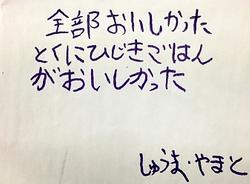 全部おいしかった
とくにひじきごはん
がおいしかった
しゅうま・やまと